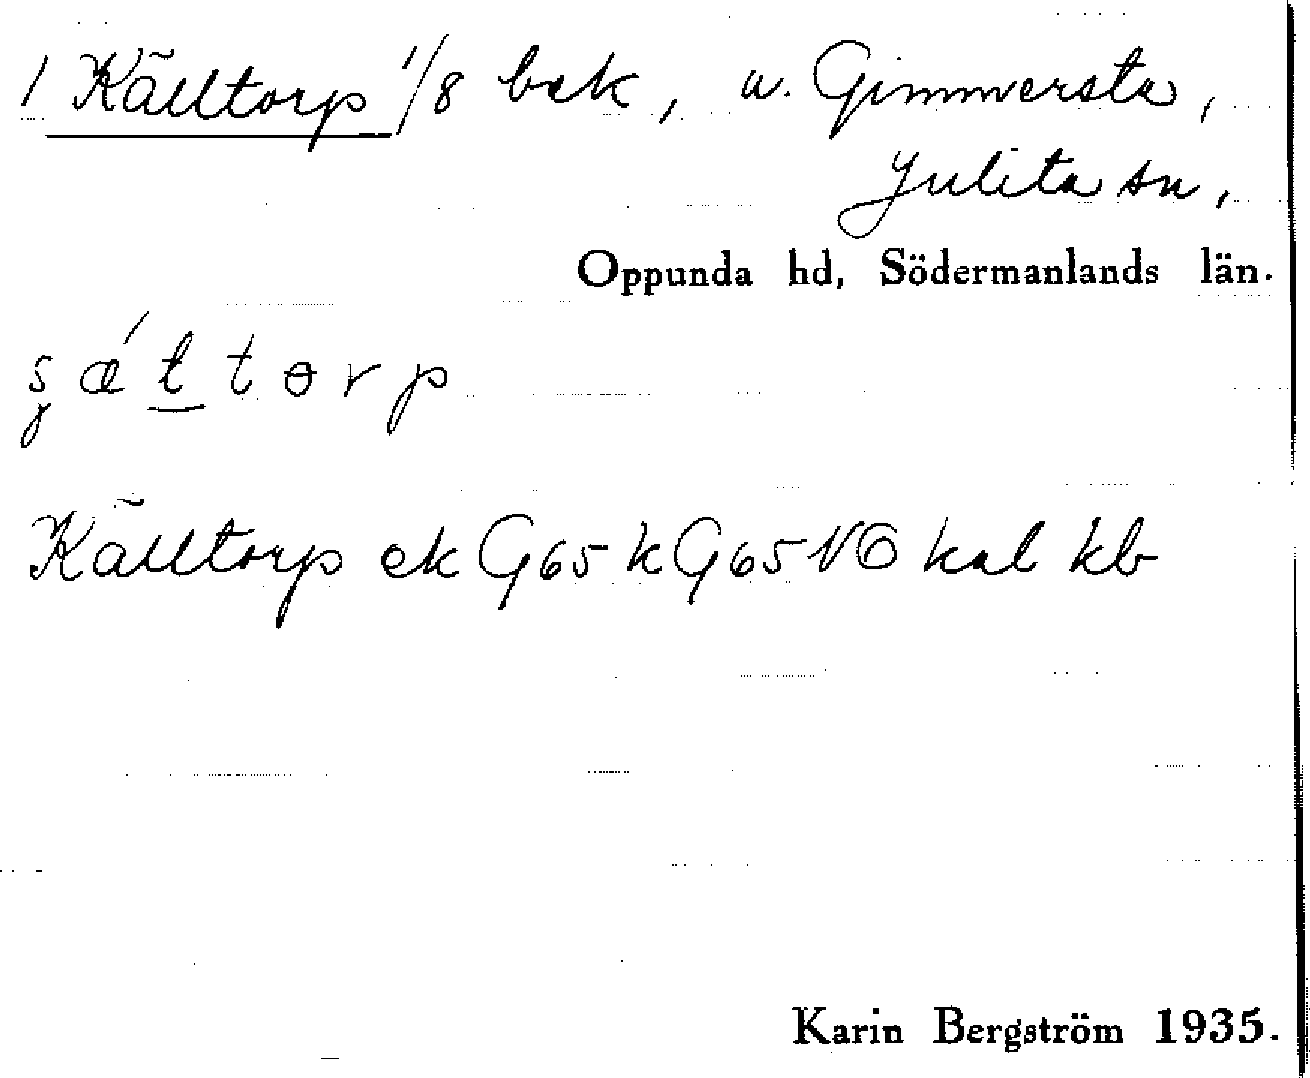 1 Källtorp 1/8 bek, u. Gimmersta,
Julita sn,
Oppunda hd, Södermanlands län.
Källtorp ek G65 k G65 NO kal kb
Karin Bergström 1935.